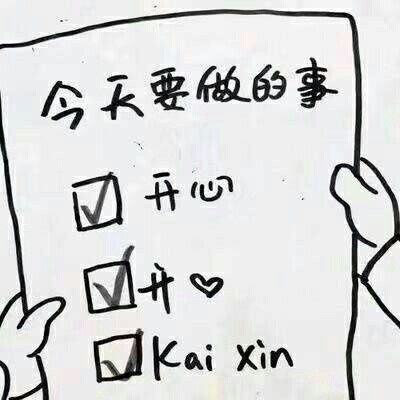 今天要做的事
☑ 开心
☑ 开♡
☑ Kai xin